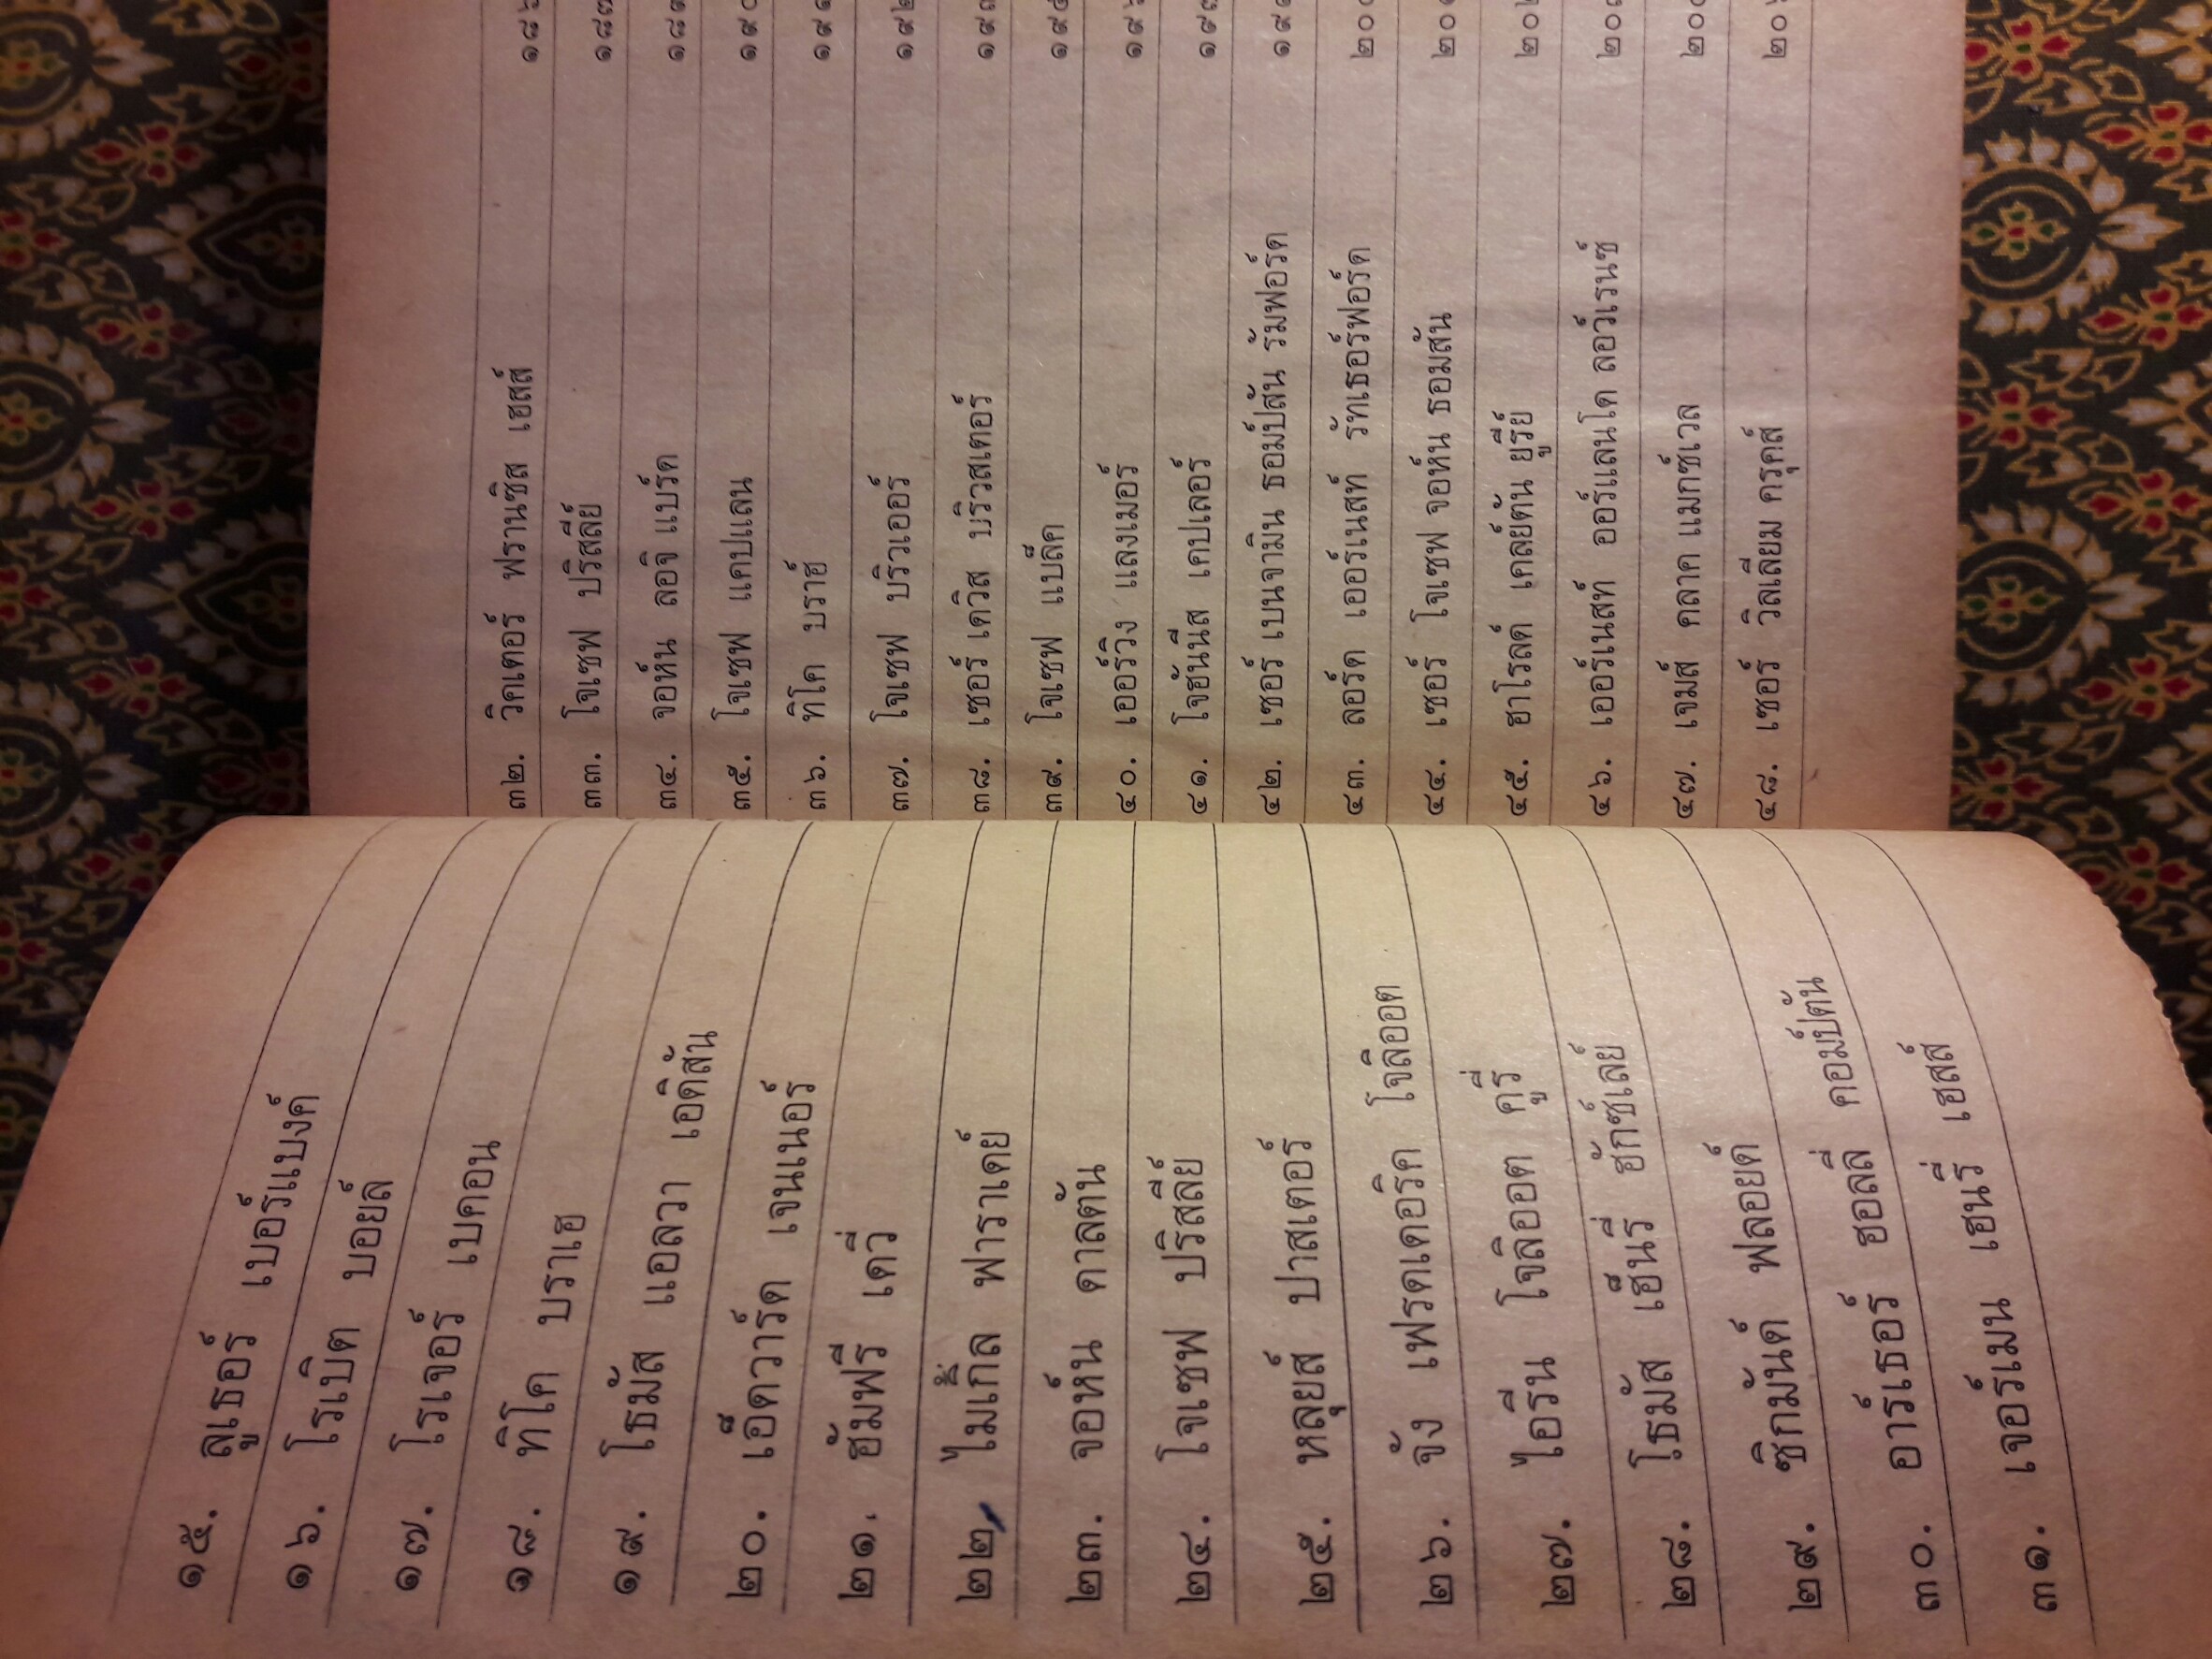 ๑๕. ลูเธอร์ เบอร์แบงค์
๑๖. โรเบิต บอยล์
๑๗. โรเจอร์ เบคอน
๑๘. ทิโค บราเฮ
๑๙. โธมัส แอลวา เอดิสัน
๒๐. เอ็ดวาร์ด เจนเนอร์
๒๑. ฮัมฟรี เดวี่
๒๒. ไมเกิ้ล ฟาราเดย์
๒๓. จอห์น ดาลตัน
๒๔. โจเซฟ ปริสลีย์
๒๕. หลุยส์ ปาสเตอร์
๒๖. จัง เฟรดเดอริค โจลิออต
๒๗. ไอรีน โจลิออต คูรี่
๒๘. โธมัส เฮ็นรี่ ฮักซ์เลย์
๒๙. ซิกมันด์ ฟลอยด์
๓๐. อาร์เธอร์ ฮอลลี่ คอมป์ตัน
๓๑. เจอร์เมน เฮนรี่ เฮสส์
๓๒. วิคเตอร์ ฟรานซิส เฮสส์ ๑๘๖
๓๓. โจเซฟ ปริสลีย์ ๑๘๗
๓๔. จอห์น ลอจิ แบร์ด ๑๘๙
๓๕. โจเซฟ แคปแลน ๑๙๐
๓๖. ทิโค บราฮ์ ๑๙๑
๓๗. โจเซฟ บริวเออร์ ๑๙๒
๓๘. เซอร์ เดวิส บริวสเตอร์ ๑๙๓
๓๙. โจเซฟ แบล็ค ๑๙๔
๔๐. เออร์วิง แลงเมอร์ ๑๙๖
๔๑. โจฮันนีส เคปเลอร์ ๑๙๗
๔๒. เซอร์ เบนจามิน ธอมป์สัน รัมฟอร์ด
๔๓. ลอร์ด เออร์เนสท์ รัทเธอร์ฟอร์ด ๒๐๐
๔๔. เซอร์ โจเซฟ จอห์น ธอมสัน ๒๐๑
๔๕. ฮาโรลด์ เคลย์ตัน ยูรีย์ ๒๐๒
๔๖. เออร์เนสท์ ออร์แลนโด ลอว์เรนซ์ ๒๐๓
๔๗. เจมส์ คลาค แมกซ์เวล
๔๘. เซอร์ วิลเลียม ครุคส์ ๒๐๖